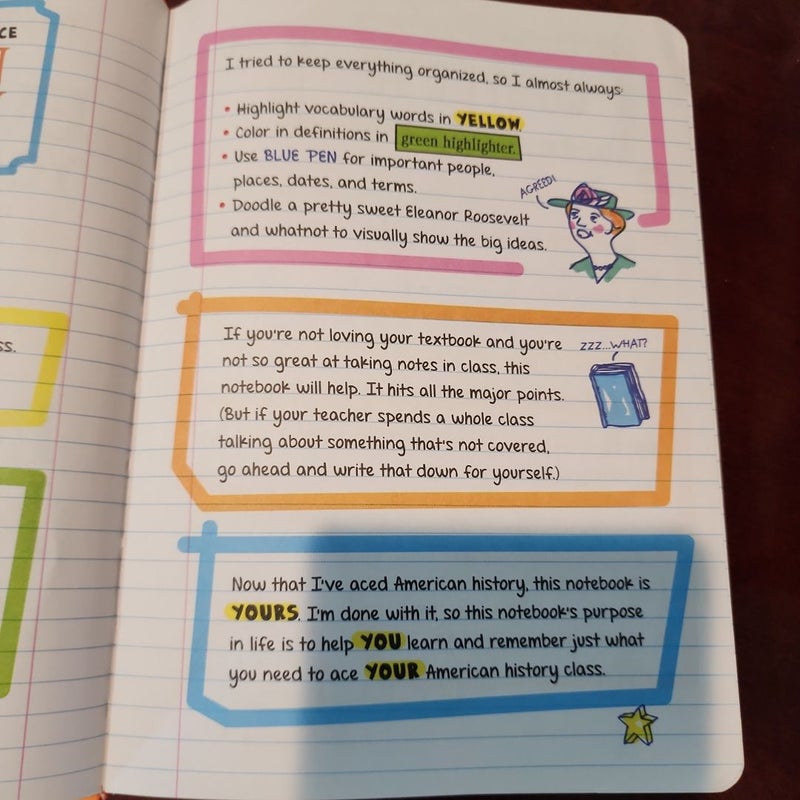 CE
I tried to keep everything organized, so I almost always:
• Highlight vocabulary words in YELLOW.
• Color in definitions in green highlighter.
• Use BLUE PEN for important people,
places, dates, and terms.
• Doodle a pretty sweet Eleanor Roosevelt
and whatnot to visually show the big ideas.
AGREED!
ss.
If you're not loving your textbook and you're
not so great at taking notes in class, this
notebook will help. It hits all the major points.
(But if your teacher spends a whole class
talking about something that's not covered,
go ahead and write that down for yourself.)
ZZZ...WHAT?
Now that I've aced American history, this notebook is
YOURS. I'm done with it, so this notebook's purpose
in life is to help YOU learn and remember just what
you need to ace YOUR American history class.